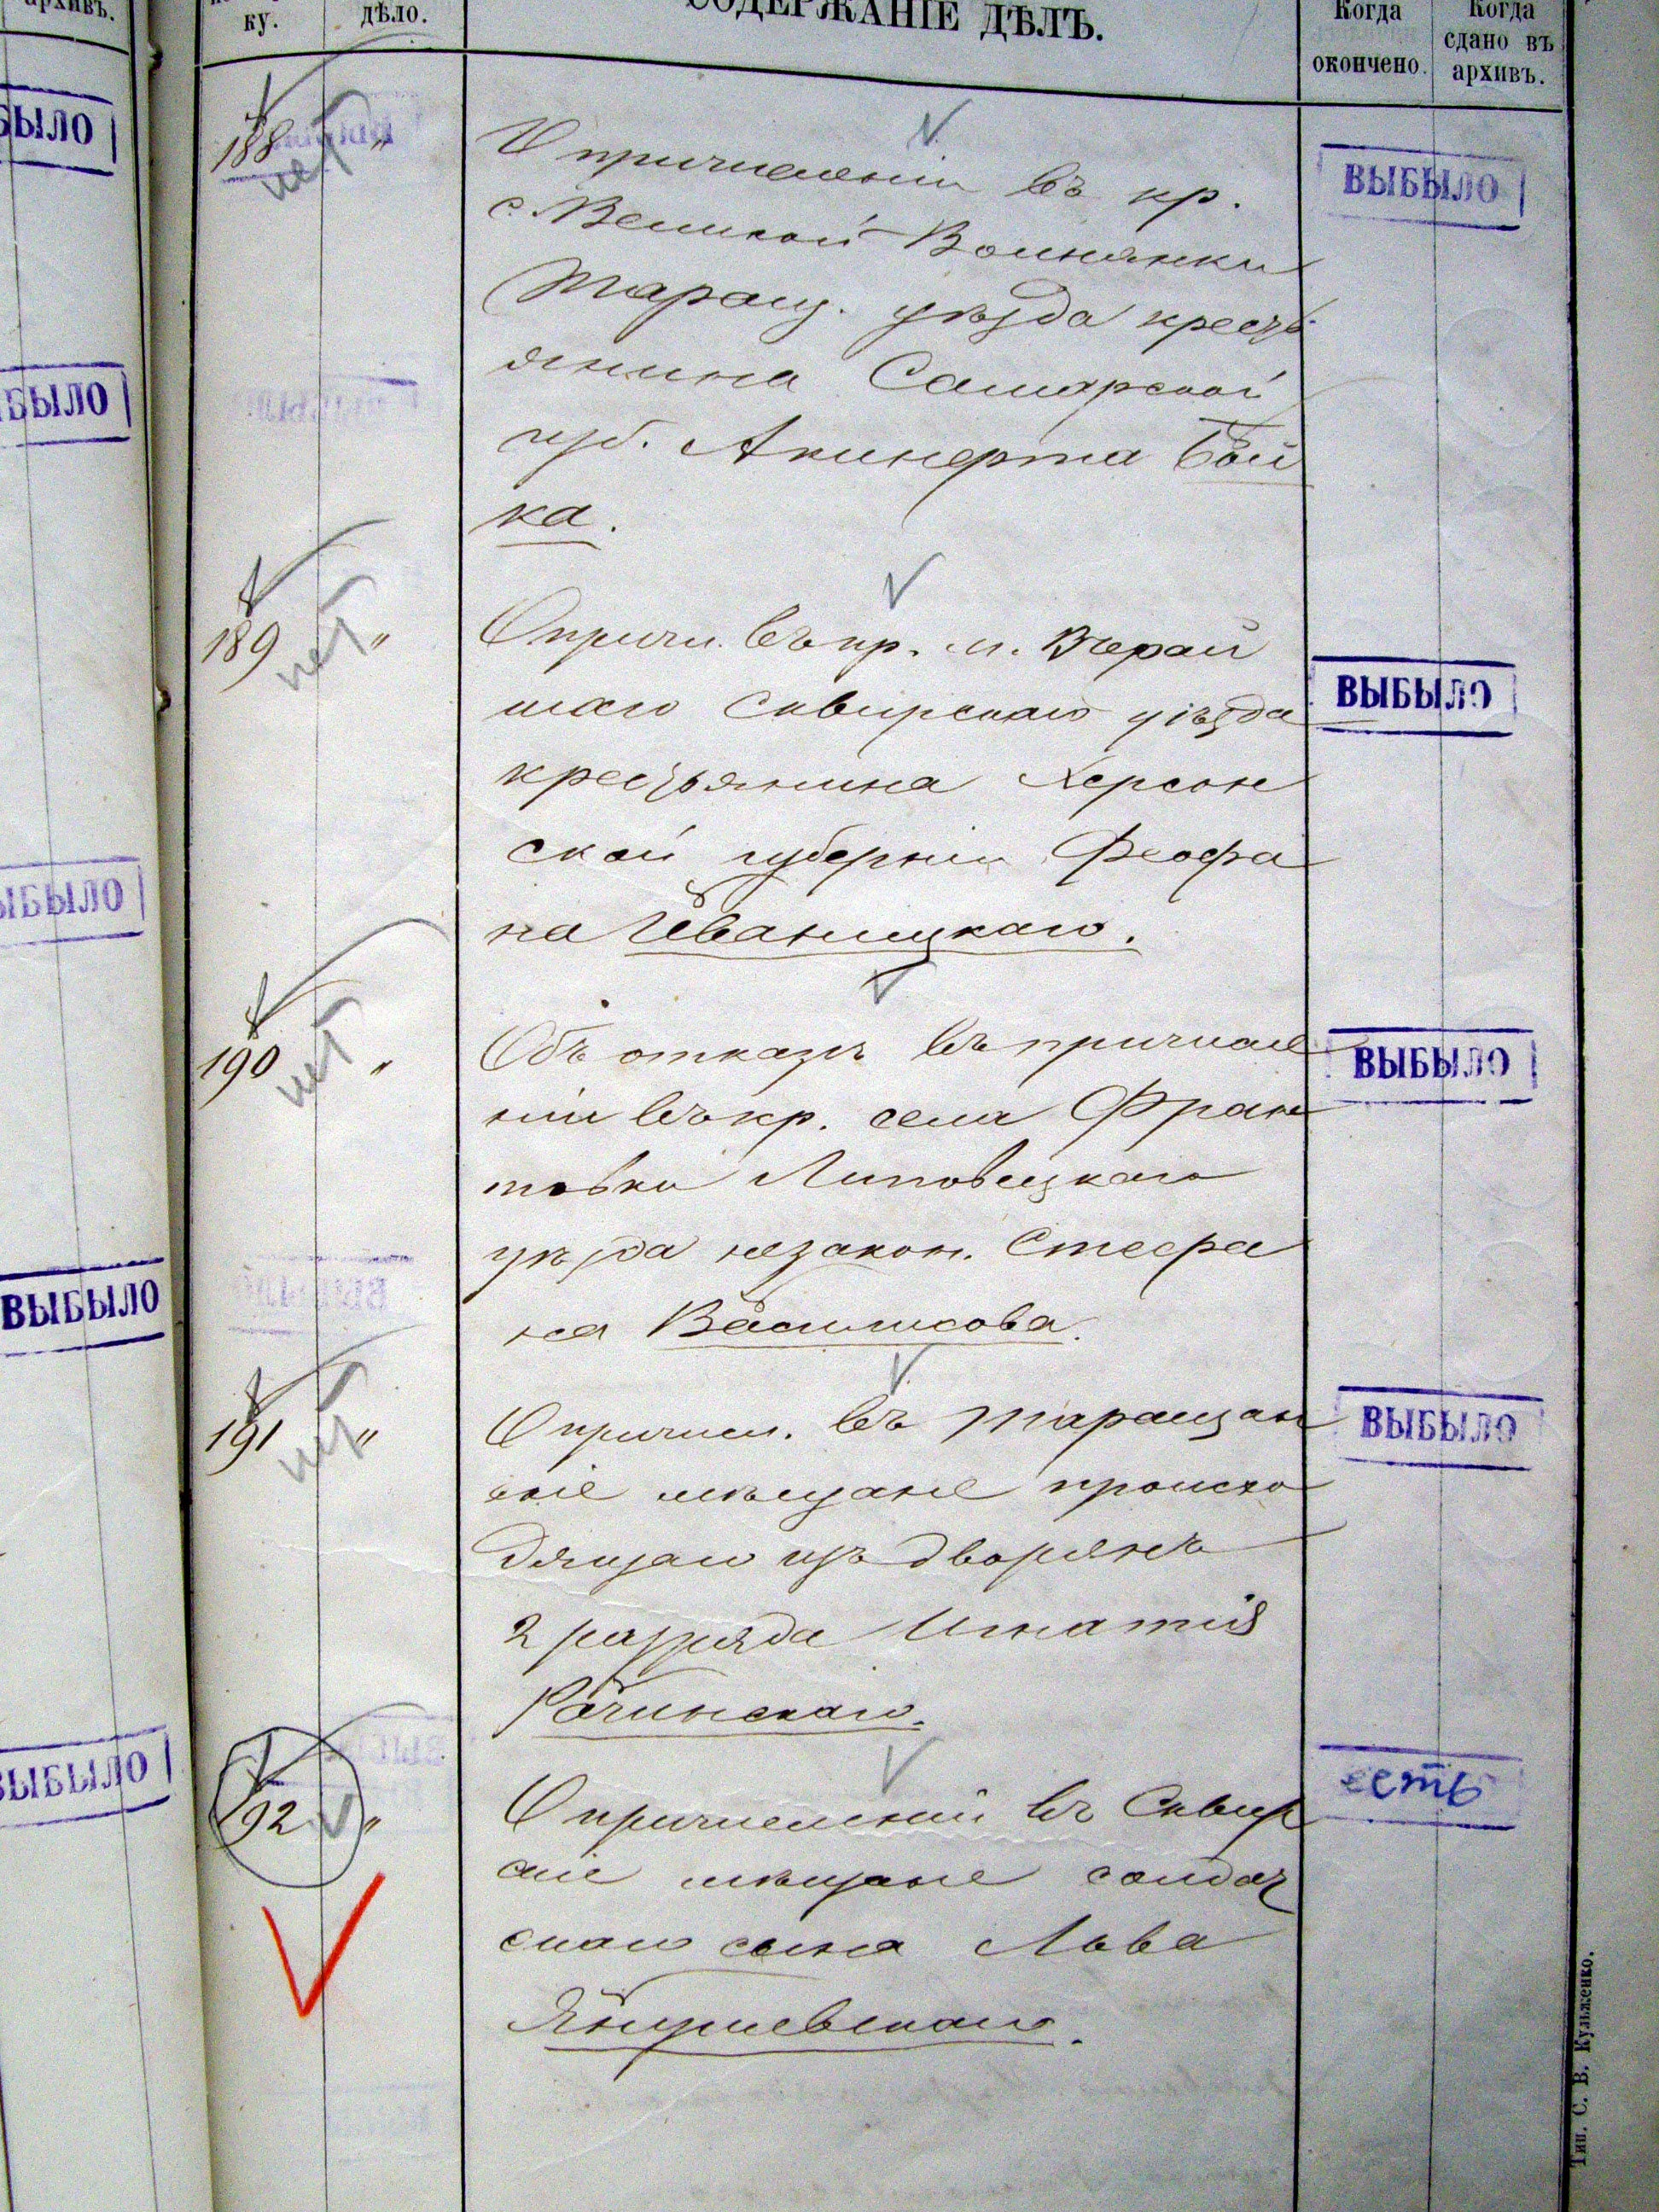 архивъ.
ку.
дѣло.
СОДЕРЖАНІЕ ДѢЛЪ.
Когда
окончено.
Когда
сдано въ
архивъ.
БЫЛО
ЫБЫЛО
ЫБЫЛО
ВЫБЫЛО
ВЫБЫЛО
188 нет "
О причисленіи въ кр.
с. Великой Вовнянки
Таращ. уѣзда кресть
янина Самарской
губ. Бой
ка.
ВЫБЫЛО
189 нет "
О причи. въ кр. м.
шаго Сквирскаго уѣзда
крестьянина Херсон
ской губерніи Феофа
на Иваницкаго.
ВЫБЫЛО
190 нет "
Объ отказѣ въ причисле
ніи въ кр. села Фрон
товки Липовецкаго
уѣзда незакон. Стефа
на Василькова.
ВЫБЫЛО
191 нет "
О причисл. въ Таращан
скіе мѣщане происхо
дящаго изъ дворянъ
2 разряда Игнатія
Рачинскаго.
ВЫБЫЛО
192 "
О причисленіи въ Сквир
скіе мѣщане солдат
скаго сына Льва
есть
Тип. С. В. Кульженко.